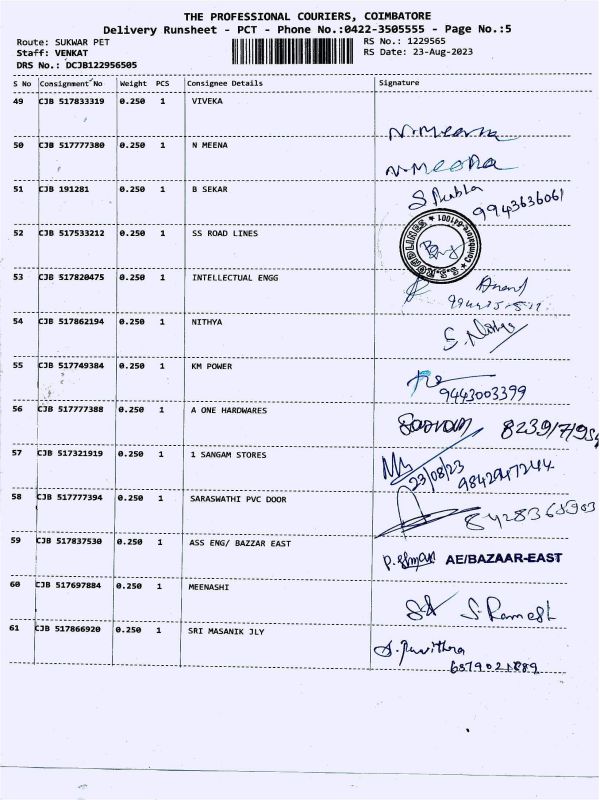 THE PROFESSIONAL COURIERS, COIMBATORE
Delivery Runsheet - PCT - Phone No.:0422-3505555 - Page No.:5
Route: SUKWAR PET RS No.: 1229565
Staff: VENKAT RS Date: 23-Aug-2023
DRS No.: DCJB122956505
S No Consignment No Weight PCS Consignee Details Signature
49 CJB 517833319 0.250 1 VIVEKA
N.Meena
50 CJB 517777380 1 0.250 N MEENA
N.Meena
51 CJB 191281 0.250 1 B SEKAR
9943636061
52 CJB 517533212 0.250 1 SS ROAD LINES
S.S.ROADLINES ★ Coimbatore-641001 ★
53 CJB 517820475 0.250 1 INTELLECTUAL ENGG
Anand
54 CJB 517862194 0.250 1 NITHYA
S. Nithya
55 CJB 517749384 0.250 1 KM POWER
9443003399
56 CJB 517777388 0.250 1 A ONE HARDWARES
57 CJB 517321919 0.250 1 1 SANGAM STORES
23/08/23
9842947244
58 CJB 517777394 0.250 1 SARASWATHI PVC DOOR
59 CJB 517837530 0.250 1 ASS ENG/ BAZZAR EAST
AE/BAZAAR-EAST
60 CJB 517697884 0.250 1 MEENASHI
S. Ramesh
61 CJB 517866920 0.250 1 SRI MASANIK JLY
S. Pavithra